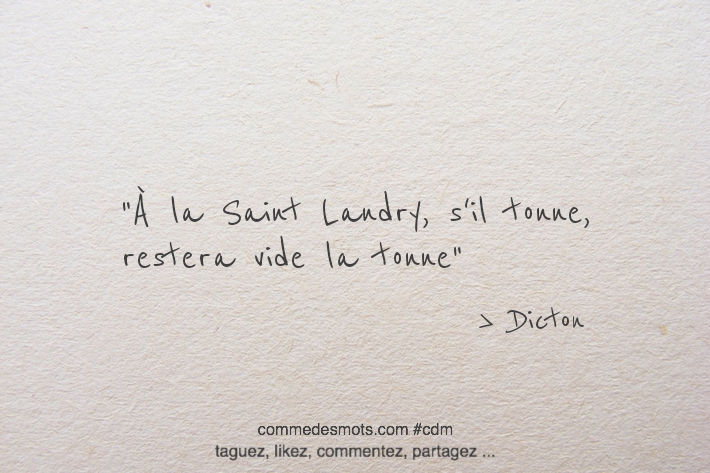 "À la Saint Landry, s'il tonne,
restera vide la tonne"
> Dicton
commedesmots.com #cdm
taguez, likez, commentez, partagez ...